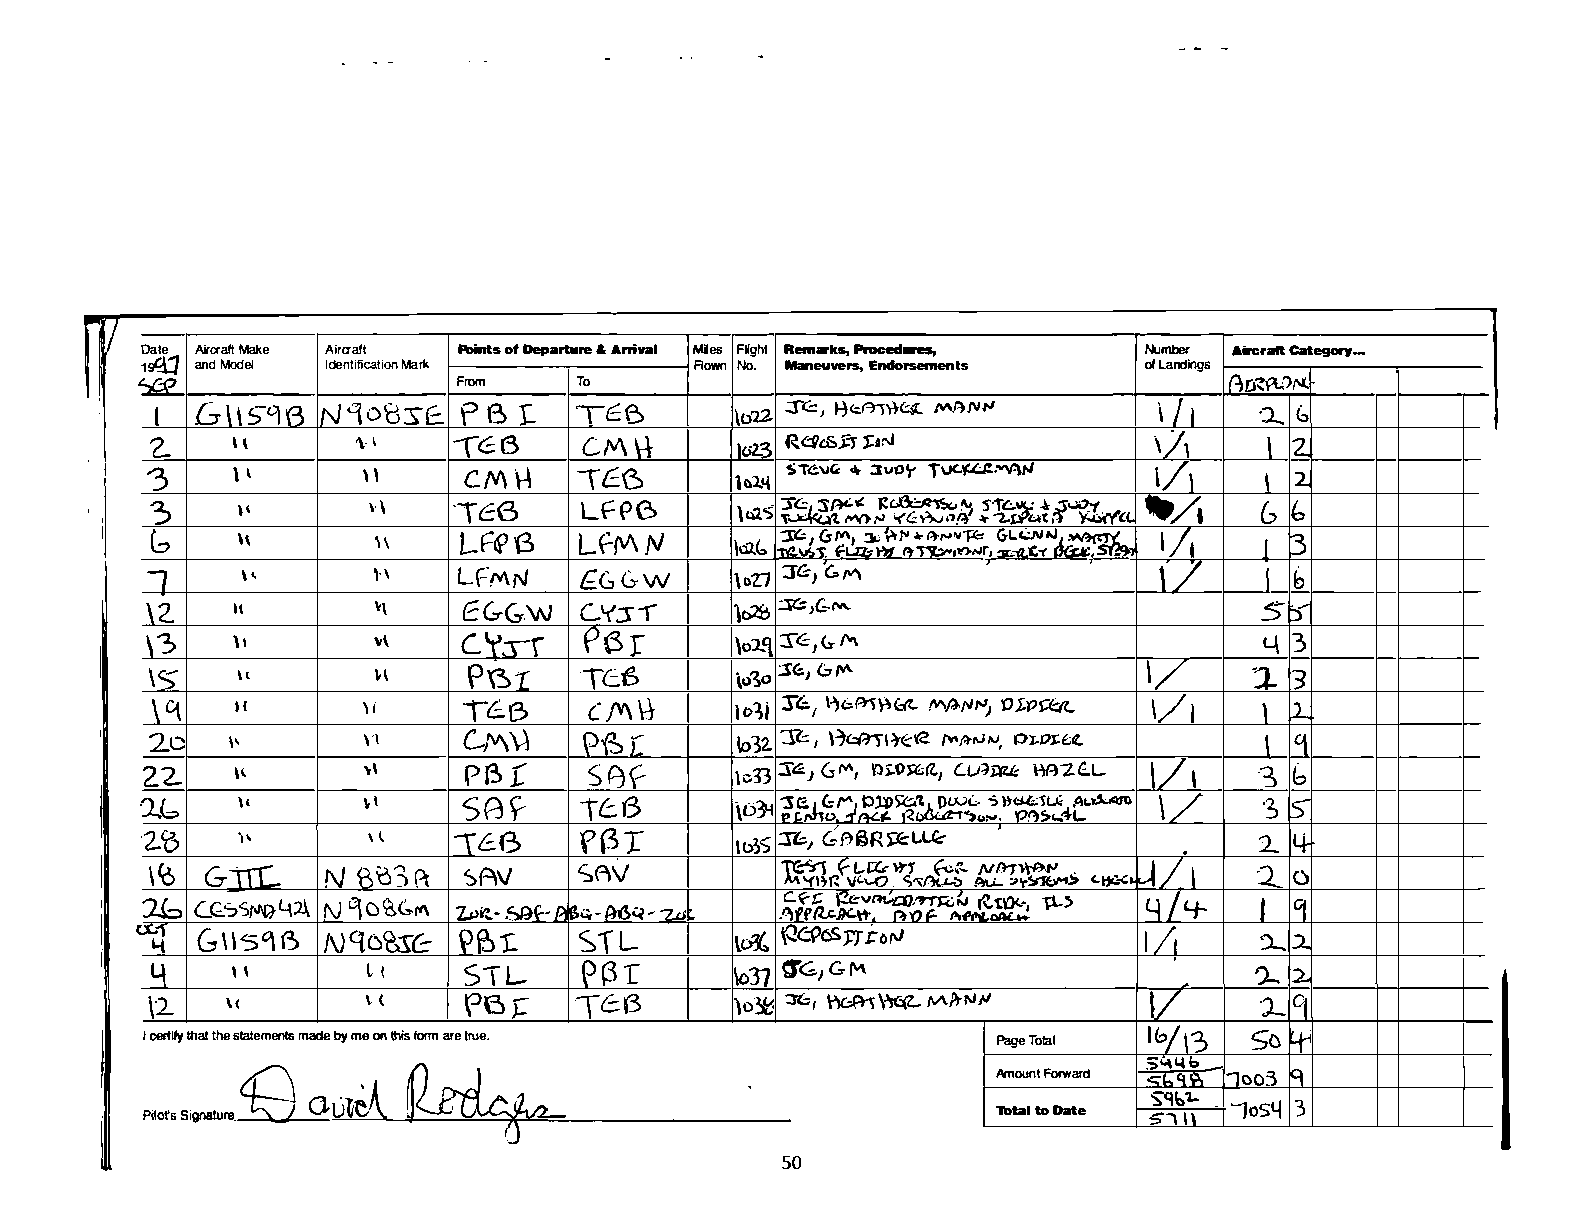 Date Aircraft Make Aircraft Points of Departure & Arrival Miles Flight Remarks, Procedures, Number Aircraft Category...
1997 and Model Identification Mark Flown No. Maneuvers, Endorsements of Landings
SEP From To AIRPLANE
1 G1159B N908JE PBI TEB 1022 JE, HEATHER MANN 1/1 2 6
2 " " TEB CMH 1023 REPOSITION 1/1 1 2
3 " " CMH TEB 1024 STEVE + JUDY TUCKERMAN 1/1 1 2
3 " " TEB LFPB 1025 JE, JACK ROBERTSON, STEVE + JUDY /1 6 6
TUCKERMAN YEHUDA + ZIPORA KOPPEL
6 " " LFPB LFMN 1026 JE, GM, IAN + ANNTE GLENN, MARTY 1/1 1 3
TRUST, FLIGHT ATTENDANT,
7 " " LFMN EGGW 1027 JE, GM 1/ 1 6
12 " " EGGW CYJT 1028 JE, GM 5 5
13 " " CYJT PBI 1029 JE, GM 4 3
15 " " PBI TEB 1030 JE, GM 1/ 2 3
19 " " TEB CMH 1031 JE, HEATHER MANN, DIDIER 1/1 1 2
20 " " CMH PBI 1032 JE, HEATHER MANN, DIDIER 1 9
22 " " PBI SAF 1033 JE, GM, DIDIER, CLAIRE HAZEL 1/1 3 6
26 " " SAF TEB 1034 JE, GM, DIDIER, DOUG 1/ 3 5
PINTO, JACK ROBERTSON, PASCAL
28 " " TEB PBI 1035 JE, GABRIELLE 2 4
18 GIII N883A SAV SAV TEST FLIGHT FOR NATHAN 1/1 2 0
MYHR STALLS ALL SYSTEMS CHECK
26 CESSNA 421 N908GM ZOR-SAF-ABQ-ABQ-ZOR CFI REVALIDATION RIDE, ILS 4/4 1 9
APPROACH, ADF APPROACH
OCT
4 G1159B N908JE PBI STL 1036 REPOSITION 1/1 2 2
4 " " STL PBI 1037 JE, GM 2 2
12 " " PBI TEB 1038 JE, HEATHER MANN 1/ 2 9
I certify that the statements made by me on this form are true. Page Total 16/13 50 4
Amount Forward 5946 5698 7003 9
Pilot's Signature David Rodgers Total to Date 5962 5711 7054 3
50